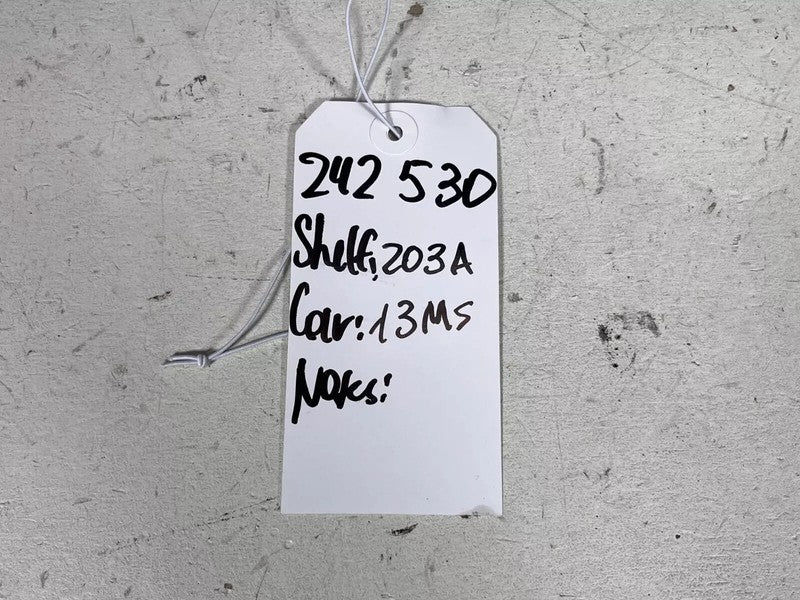 242 530
Shelf: 203A
Car: 13MS
Notes: